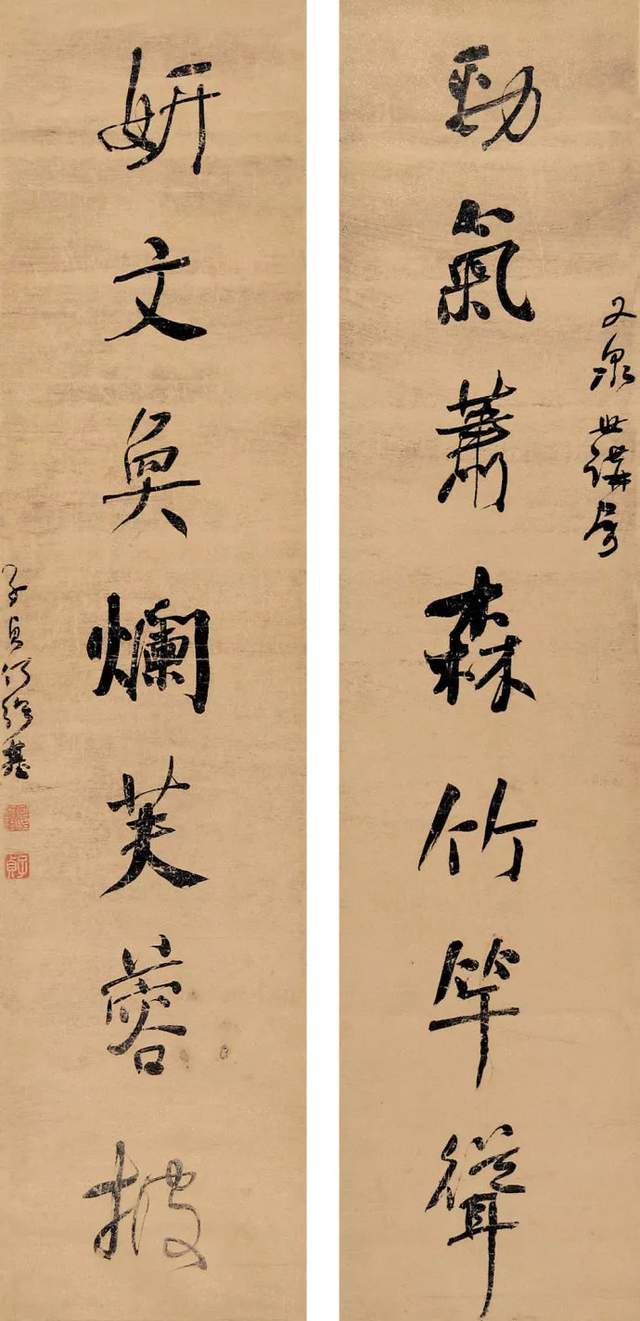 又泉世講属
勁氣蕭森竹竿聳
妍文奐爛芙蓉披
子貞何紹基
子貞